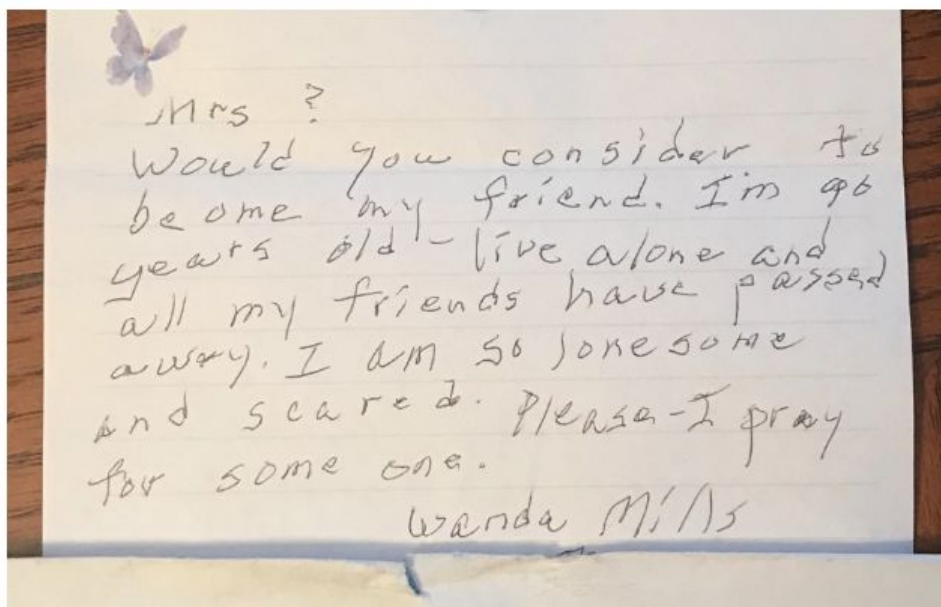 Mrs ?
Would you consider to
be ome my friend. I'm 90
years old - live alone and
all my friends have passed
away. I am so lonesome
and scared. Please - I pray
for some one.
Wanda Mills